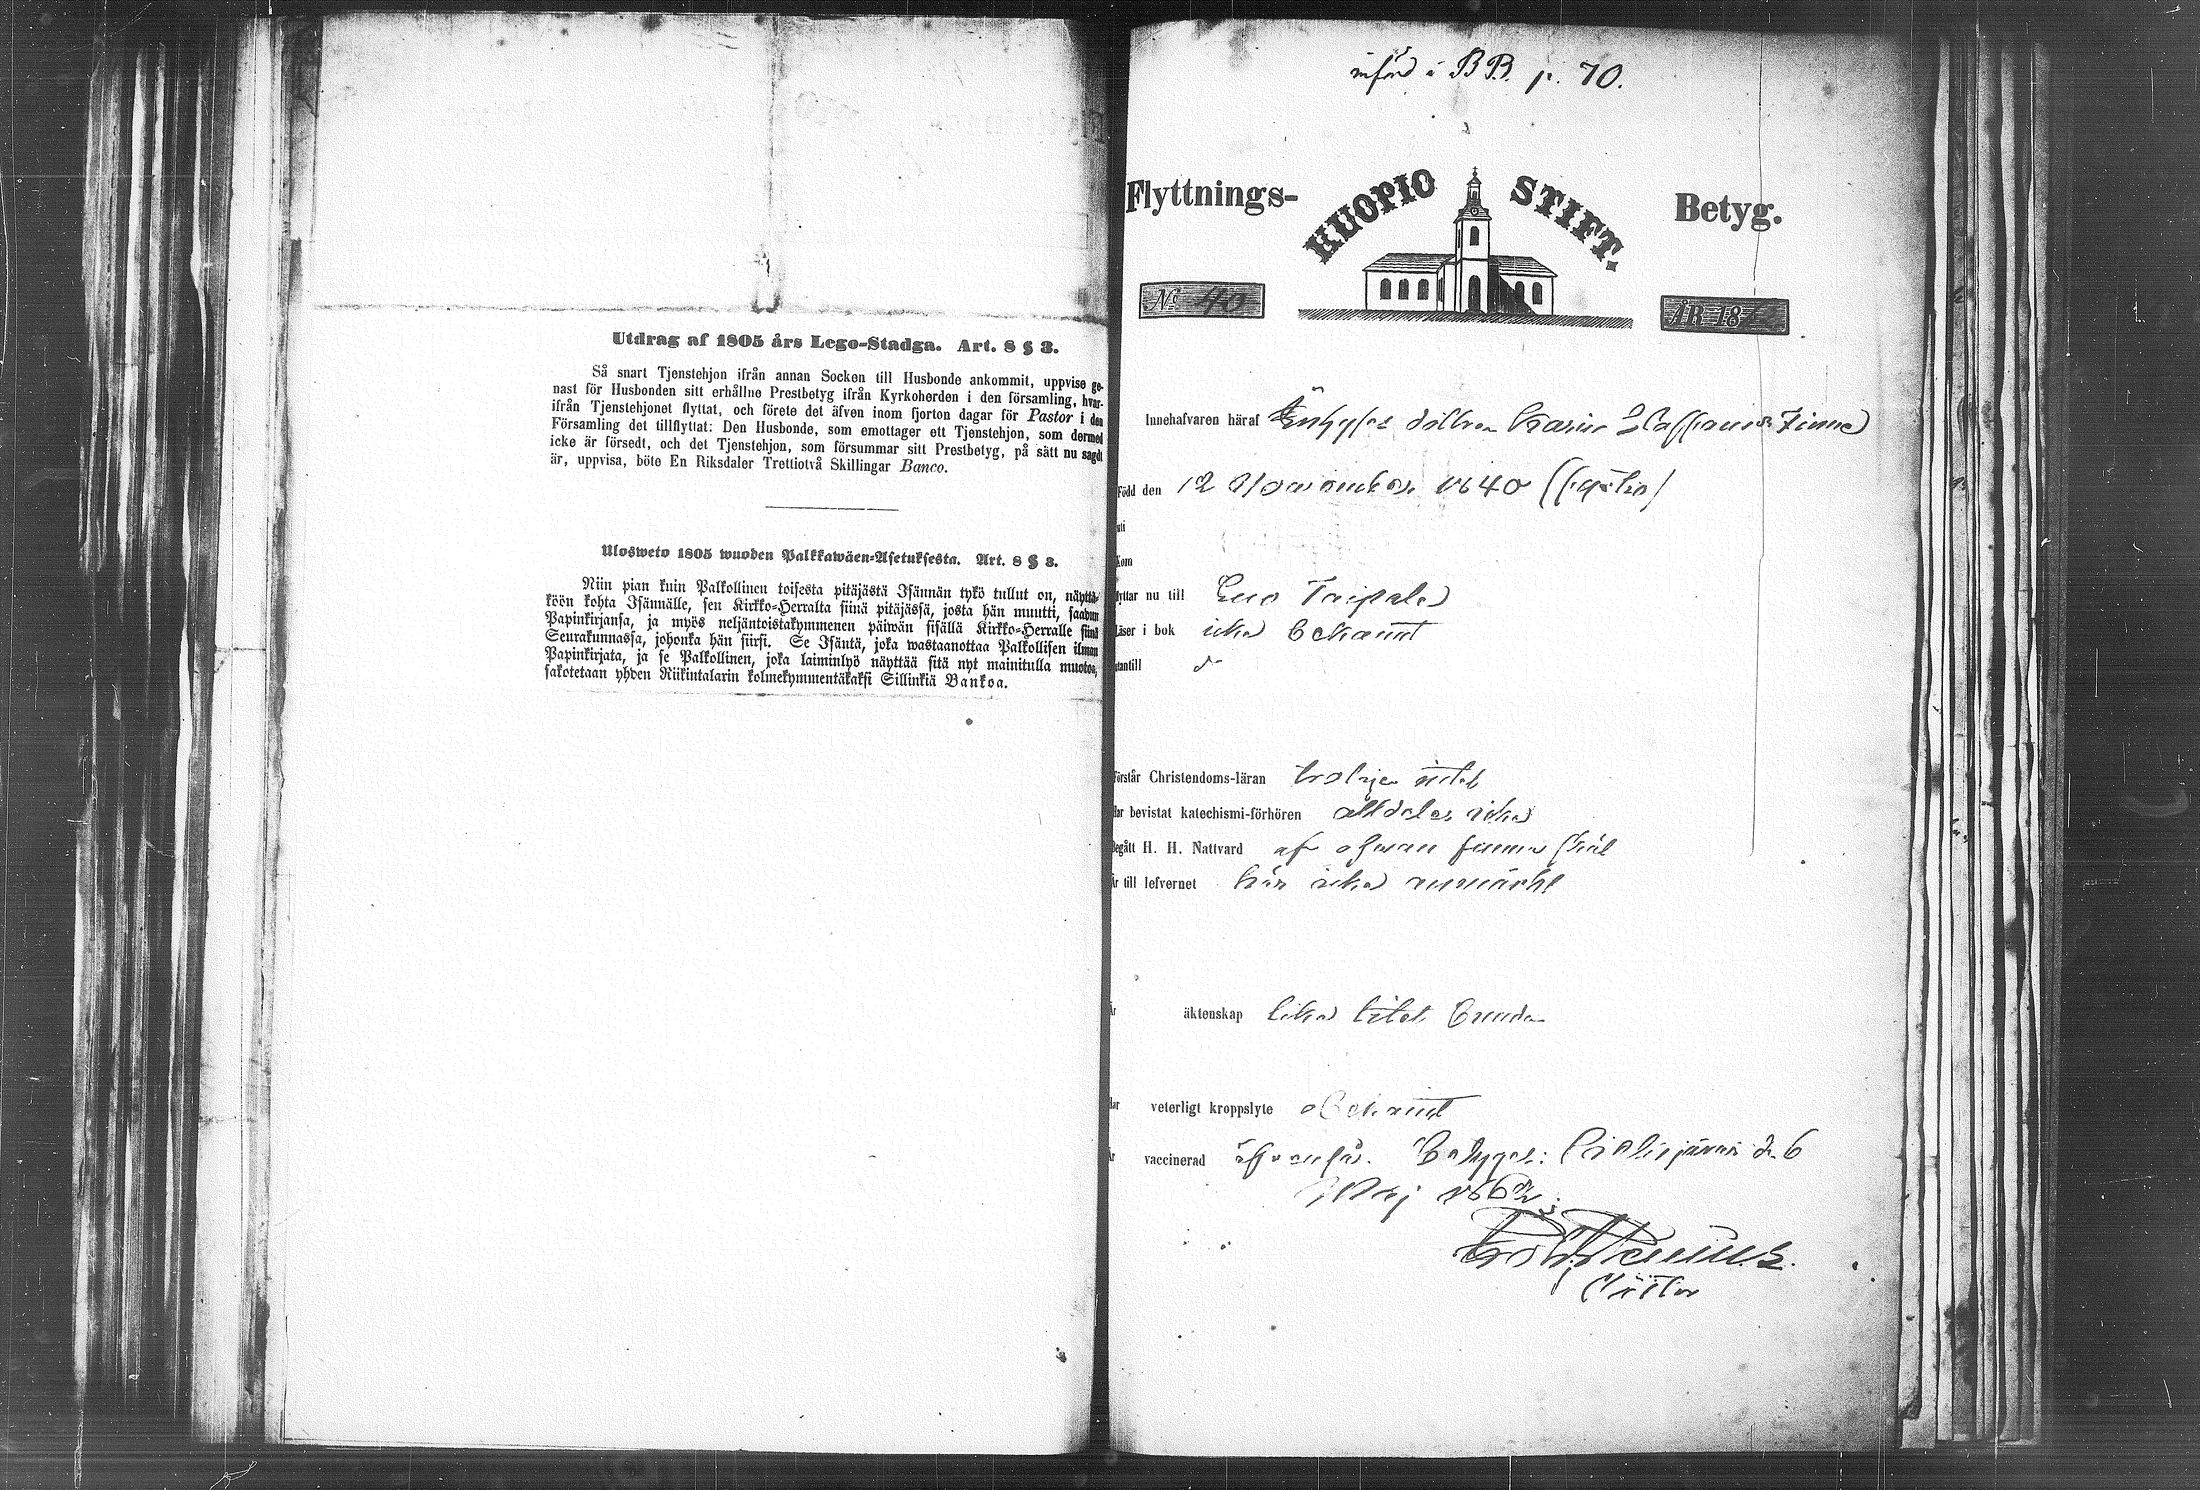 Utdrag af 1805 års Lego-Stadga. Art. 8 § 3.
Så snart Tjenstehjon ifrån annan Socken till Husbonde ankommit, uppvise ge-
nast för Husbonden sitt erhållne Prestbetyg ifrån Kyrkoherden i den församling, hvar-
ifrån Tjenstehjonet flyttat, och förete det äfven inom fjorton dagar för Pastor i den
Församling det tillflyttat: Den Husbonde, som emottager ett Tjenstehjon, som dermed
icke är försedt, och det Tjenstehjon, som försummar sitt Prestbetyg, på sätt nu sagdt
är, uppvisa, böte En Riksdaler Trettiotvå Skillingar Banco.
Ulosweto 1805 wuoden Palkkawäen-Asetuksesta. Art. 8 § 3.
Niin pian kuin Palkollinen toisesta pitäjästä Isännän tykö tullut on, näyttä-
köön kohta Isännälle, sen Kirkko-Herralta siinä pitäjässä, josta hän muutti, saadun
Papinkirjansa, ja myös neljäntoistakymmenen päiwän sisällä Kirkko-Herralle siinä
Seurakunnassa, johonka hän siirsi. Se Isäntä, joka wastaanottaa Palkollisen ilman
Papinkirjata, ja se Palkollinen, joka laiminlyö näyttää sitä nyt mainitulla muotoa,
sakotetaan yhden Riikintalarin kolmekymmentäkaksi Sillinkiä Bankoa.
införd i BB. p. 70.
Flyttnings- KUOPIO STIFT. Betyg.
No 40 ÅR 18
Innehafvaren häraf Inhyses dottren Karin Staffansdr Zinne
Född den 12 November 1840 (fyratio)
uti
Kom
flyttar nu till Eno Taipale
Läser i bok icke bekant
utantill d
Förstår Christendoms-läran troligen intet
Har bevistat katechismi-förhören alldeles icke
Begått H. H. Nattvard af ofvan skäl
Är till lefvernet här icke anmärkt
Är äktenskap lika litet bunden
Har veterligt kroppslyte obekant
Är vaccinerad äfvenså. Betygar: Pielisjärvi d. 6
Maj 1862.
Pastor